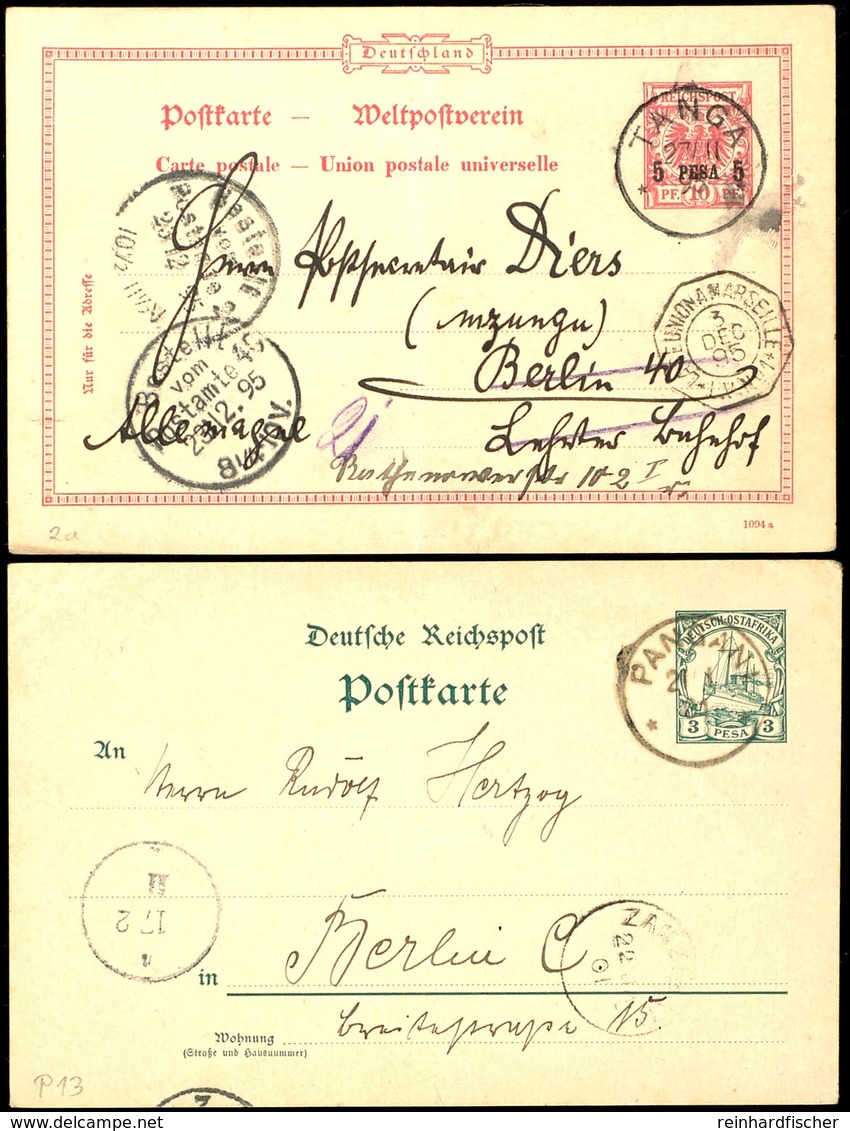 Deutschland
Postkarte — Weltpostverein
Carte postale — Union postale universelle
REICHSPOST
5 PESA 5
PF. 10 PF.
TANGA
Bestellt
vom
Postamte
23/12
10½
Nur für die Adresse
Herrn Postsecretair Diers
(mzungu)
Berlin 40
LA RÉUNION A MARSEILLE
3
DEC
95
Bestellt
vom
Postamte 40
23/12.95
Allemagne
Lehrter Bahnhof
Rathenowerstr 102 I
2a
1094 a
Deutsche Reichspost
Postkarte
DEUTSCH-OSTAFRIKA
3 PESA 3
PANGANI
An
Herrn Rudolf Hertzog
17 2
in
Berlin C
ZANZ
22
01
Breitestrasse 15.
Wohnung
(Straße und Hausnummer)
P13
reinhardfischer